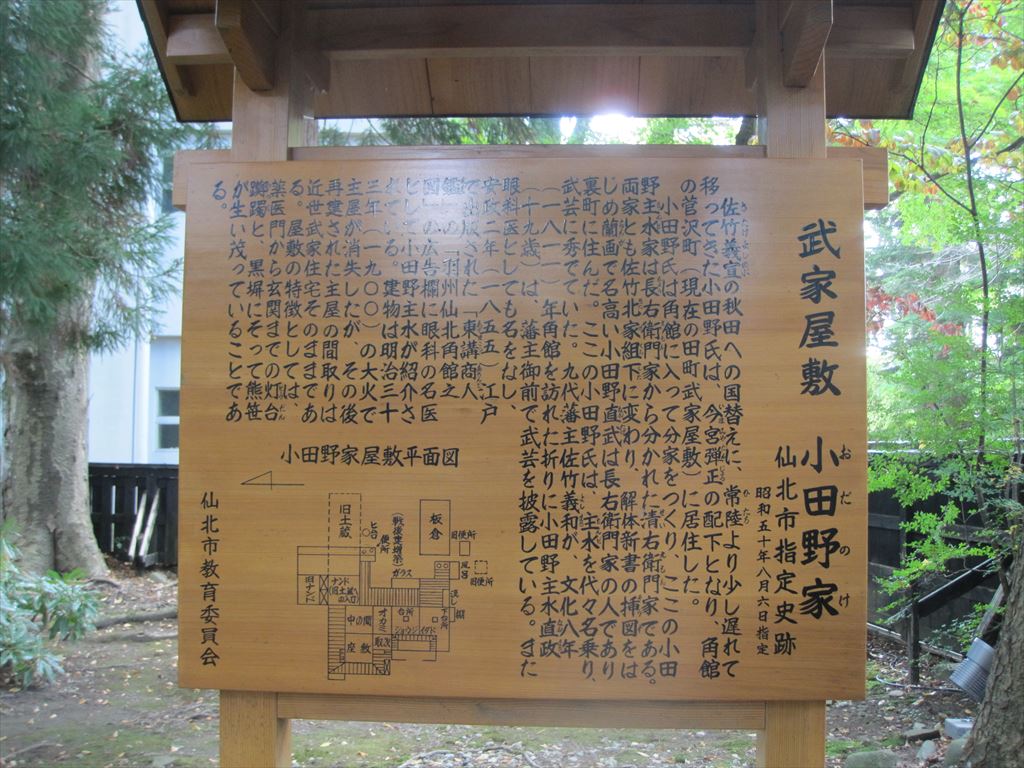 武家屋敷 小田野家
おだのけ
仙北市指定史跡
昭和五十年八月六日指定
佐竹義宣の秋田への国替えに、常陸より少し遅れて
移ってきた小田野氏は、今宮弾正の配下となり、角館
の菅沢町(現在の田町武家屋敷)に居住した。
小田野氏は角館に入って分家をつくり、ここの小田
野主水家は長右衛門家から分かれた清右衛門家である。
両家とも佐竹北家組下に変わり、解体新書の挿図をは
じめ蘭画で名高い小田野直武は長右衛門家の人であり、
裏町に住んだ。ここの小田野氏は、主水を代々名乗り、
武芸に秀でていた。九代藩主佐竹義和が、文化八年
(一八一一)年角館を訪れた折りに小田野主水直政
(十九歳)は、藩主御前で武芸を披露している。また
眼科医としても名をなし、
安政二年(一八五五)江戸
で出版された「東講商人
鑑」の「羽州仙北角館之
図」の広告欄に眼科の名医
として小田野主水が紹介さ
れている。建物は明治三十
三年(一九〇〇)の大火で
主屋が消失したが、その後
再建された主屋の間取りは
近世武家住宅そのままであ
る。屋敷の特徴としては、
薬医門から玄関までの灯台
躑躅と、黒塀にそって熊笹
が生い茂っていることであ
る。
小田野家屋敷平面図
旧土蔵
ヒ台
便所
(戦後重増築)
ガラス
板倉
旧便所
風呂
旧便所
流し
棚
下台所
旧ナンド
ナンド
旧土蔵へ
出入口
中の間
オカミ
台所
ショウジ
イタド
取次
座敷
仙北市教育委員会